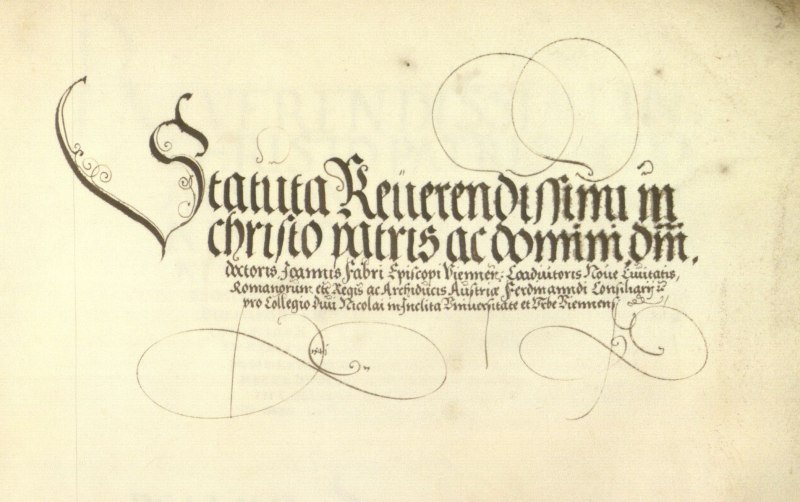 Statuta Reuerendissimi in
christo patris ac domini, dn̄i,
doctoris Ioannis Fabri Episcopi Viennen: Coadiutoris Noue Ciuitatis,
Romanorum etc̃ Regis ac Archiducis Austrię Ferdinandi Consiliarij etc̃
pro Collegio diui Nicolai in Inclita Vniuersitate et Vrbe Viennensi